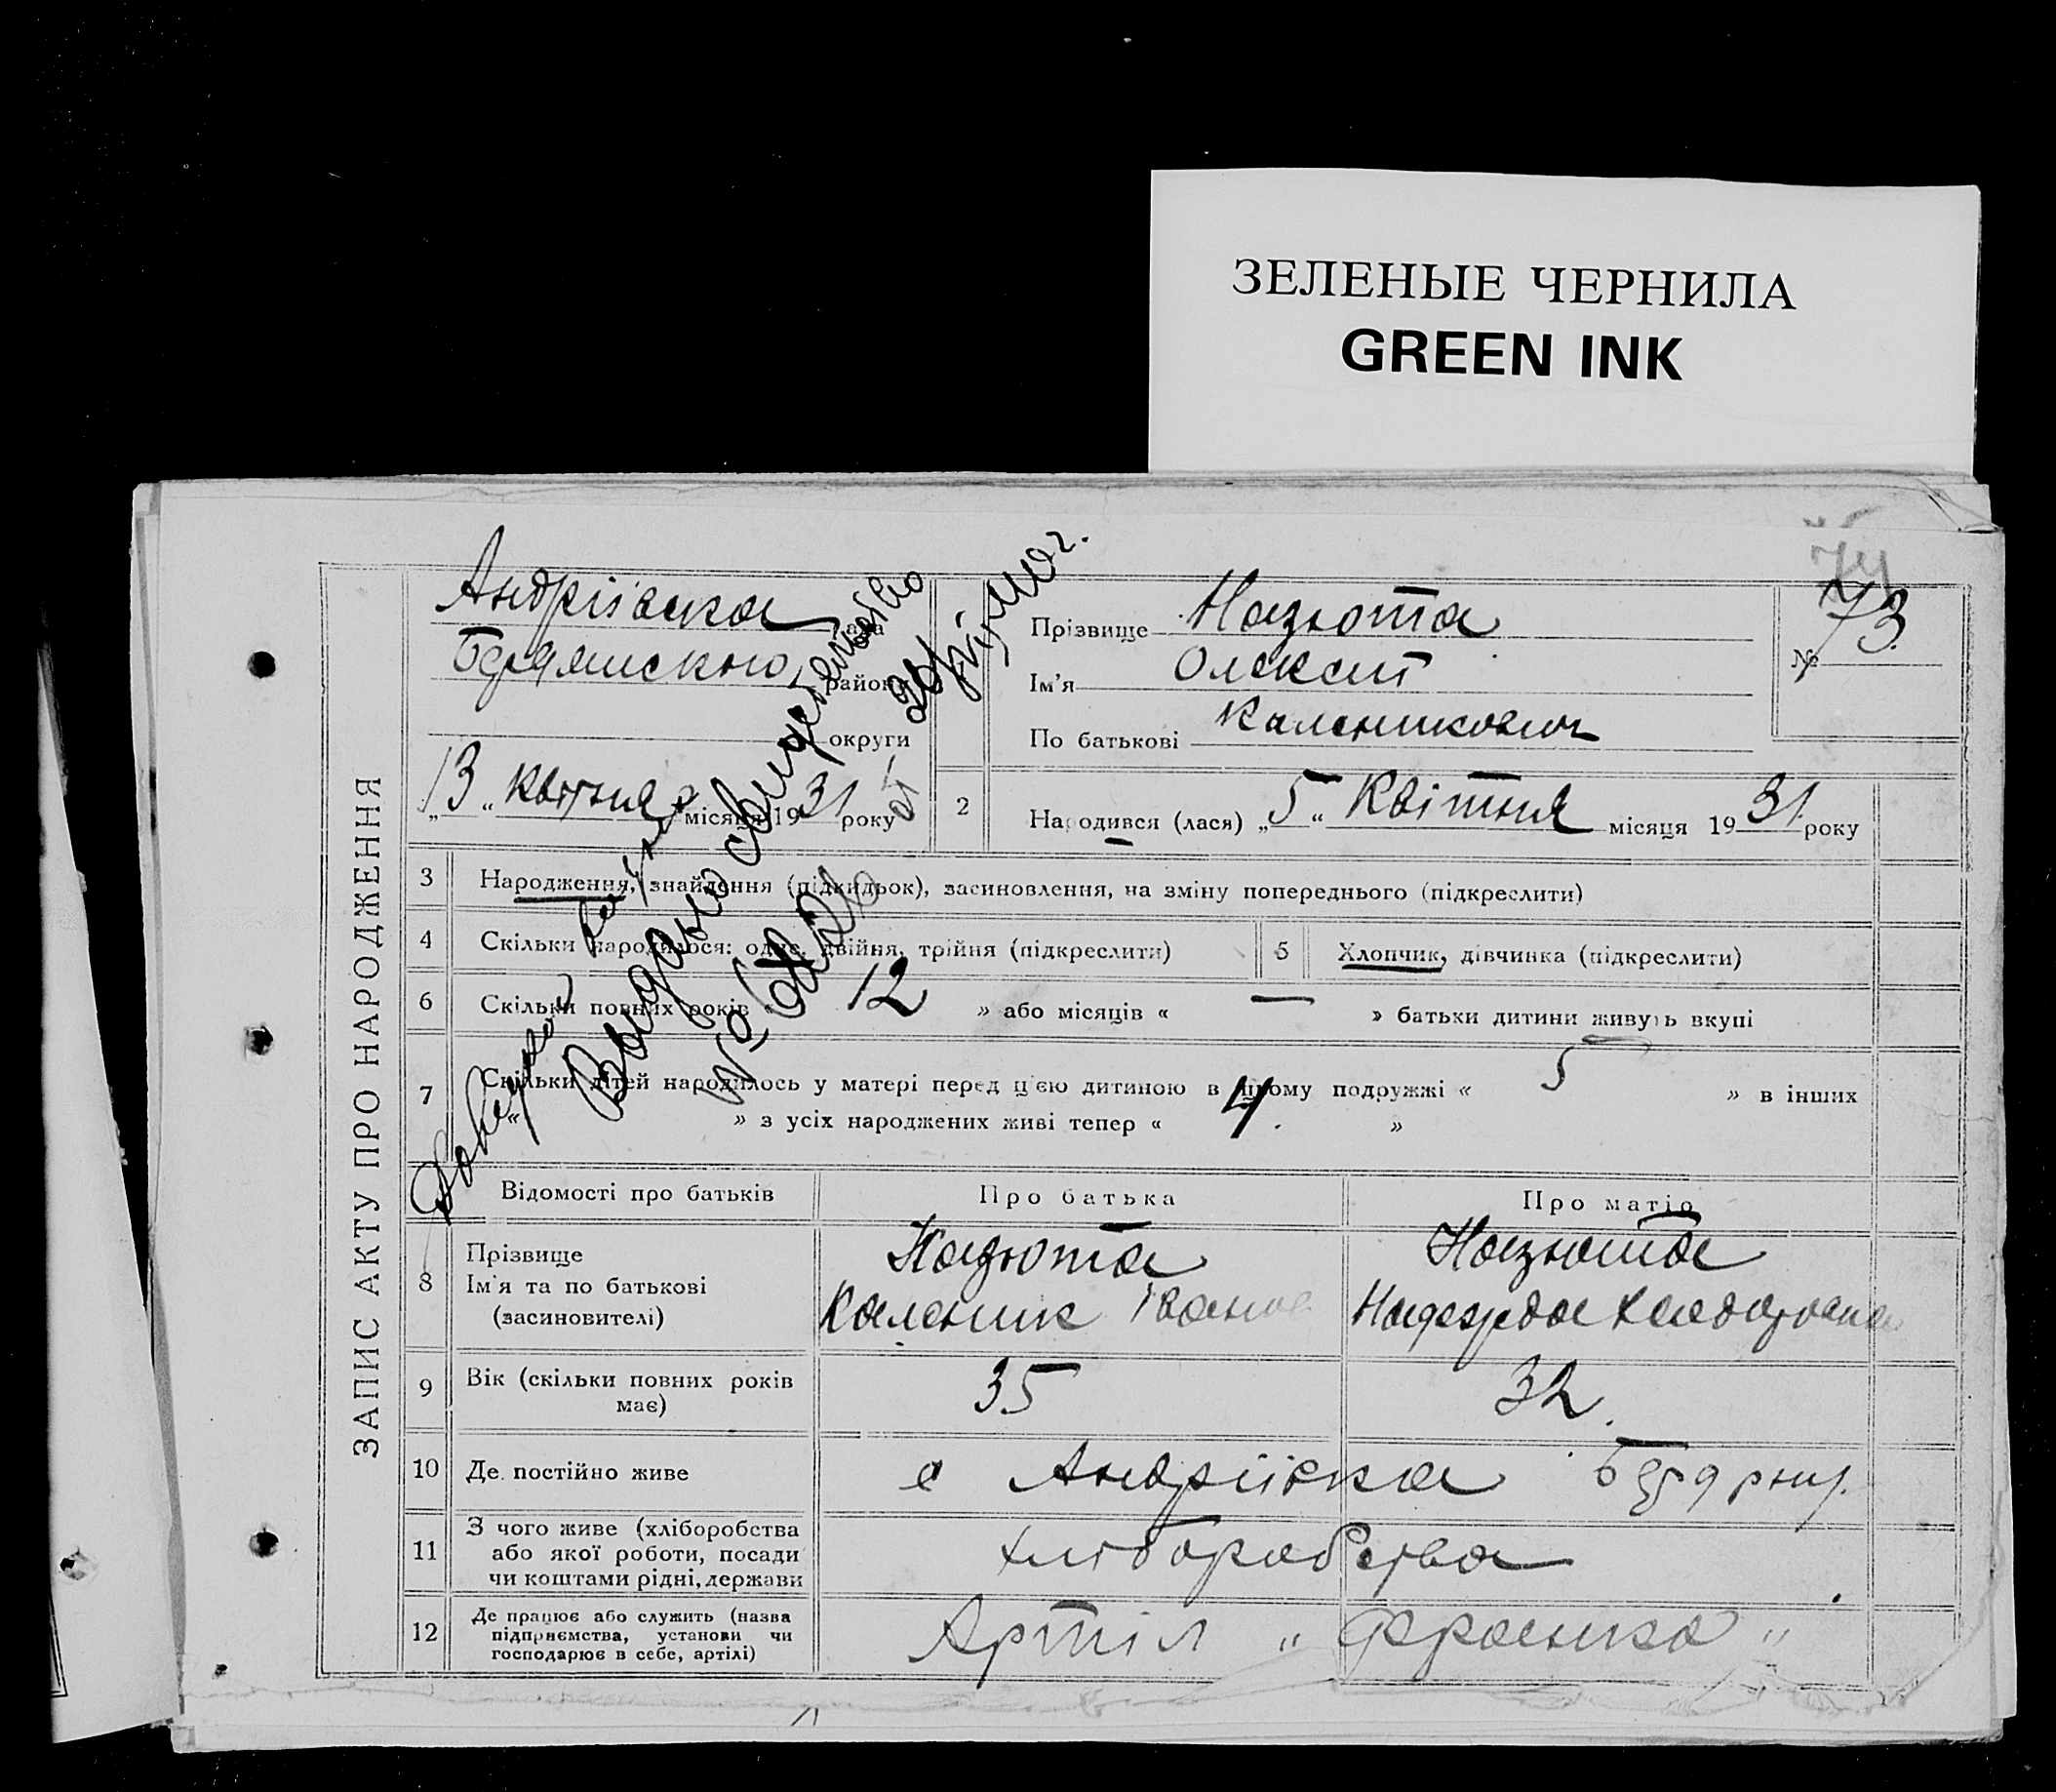 ЗЕЛЕНЫЕ ЧЕРНИЛА
GREEN INK
74
ЗАПИС АКТУ ПРО НАРОДЖЕННЯ
Андріївка
Бердянського району
округи
„13“ квітня місяця 1931 року
Прізвище Назюта
Ім'я Олексій
По батькові Каленикович
№ 73
2 Народився (лася) „5“ Квітня місяця 1931 року
3 Народження, знайдення (підкидьок), засиновлення, на зміну попереднього (підкреслити)
4 Скільки народилося: одне, двійня, трійня (підкреслити)
5 Хлопчик, дівчинка (підкреслити)
6 Скільки повних років « 12 » або місяців « — » батьки дитини живуть вкупі
7 Скільки дітей народилось у матері перед цією дитиною в цьому подружжі « 5 » в інших
« » з усіх народжених живі тепер « 4 »
Видано свидетельство
№
Відомості про батьків Про батька Про матір
8 Прізвище Назюта Назюта
Ім'я та по батькові Каленик Іванов Надежда
(засновителі)
9 Вік (скільки повних років має) 35 32
10 Де постійно живе с Андріївка
11 З чого живе (хліборобства
або якої роботи, посади
чи коштами рідні, держави хліборобства
12 Де працює або служить (назва
підприємства, установи чи
господарює в себе, артілі) Артіл „Франка"